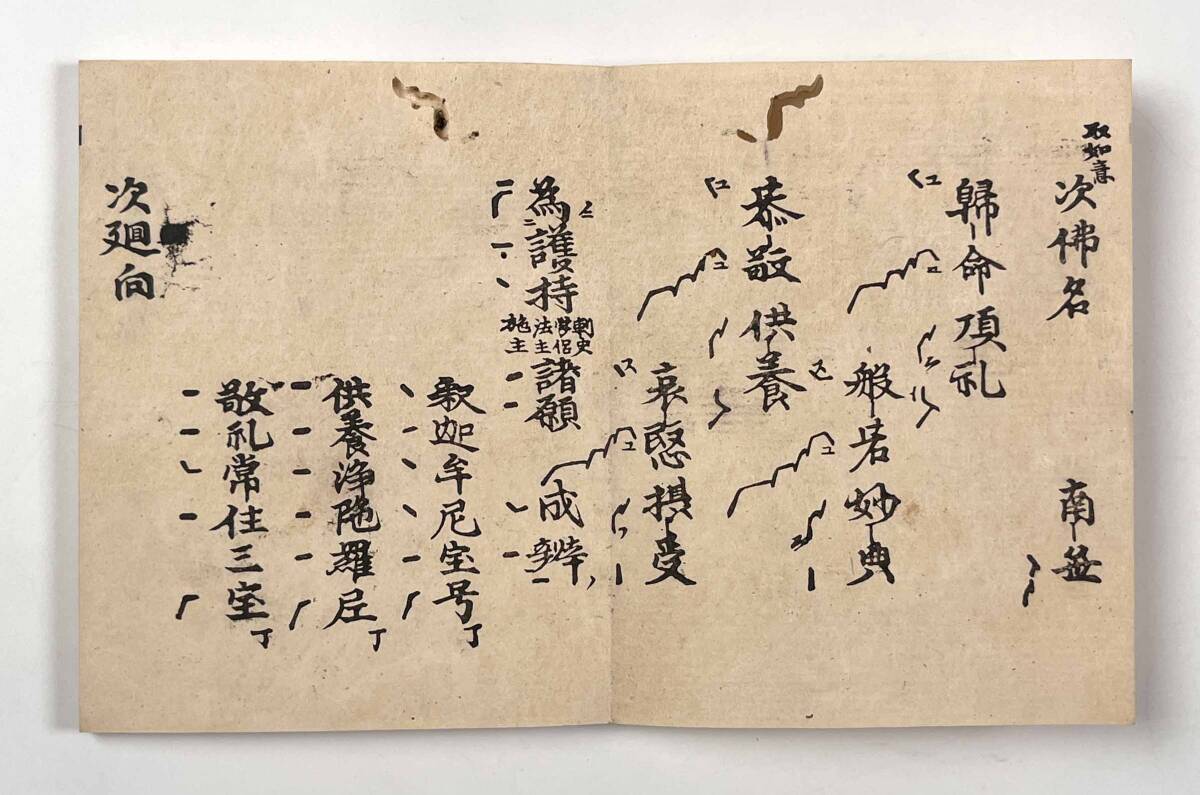 取如意
次佛名 南無
歸命頂礼
般若妙典
恭敬供養
哀愍摂受
為護持
㔟史
学侶
法主
施主
諸願
成辦
釈迦牟尼宝号丁
供養浄陁羅尼丁
敬礼常住三宝丁
次廻向